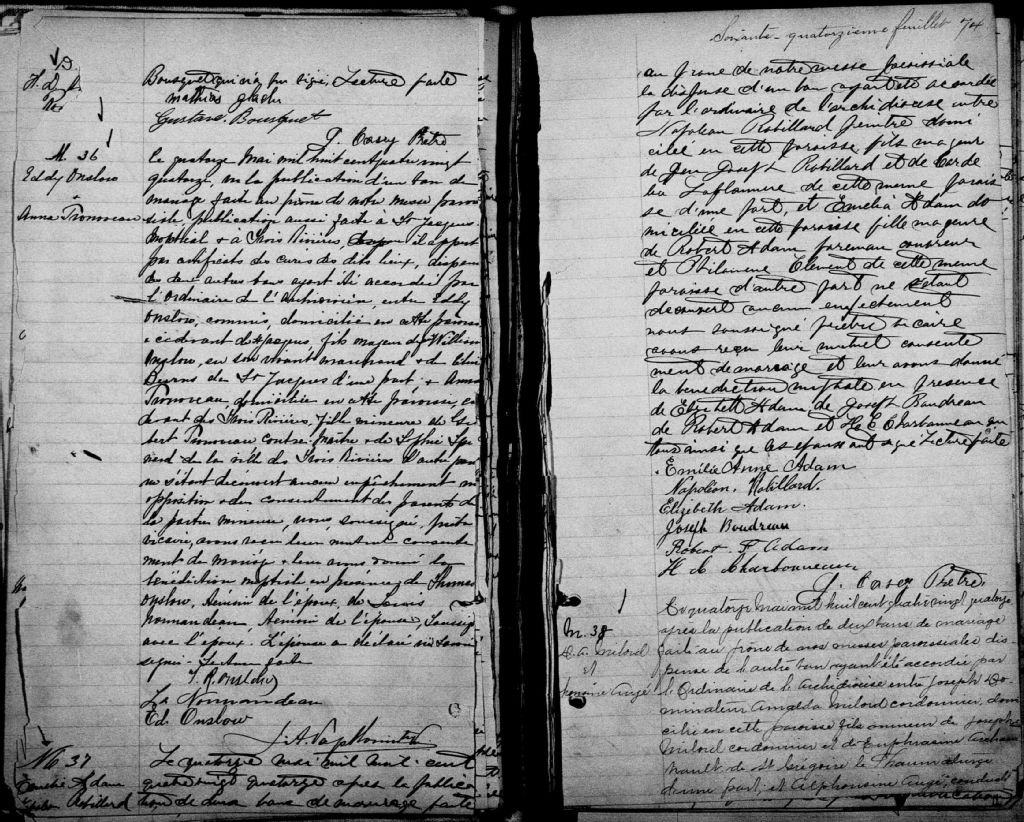 Bousquet qui ont signé, Lecture faite
Mathias
Gustave Bousquet
J. Casey Ptre
M. 36
Eddy Onslow
&
Anna Tronveau
Le quatorze Mai mil huit cent quatre vingt
quatorze, vu la publication d'un ban de
mariage faite au prône de notre messe parois
siale, publication aussi faite à St Jacques
Montréal & à Trois Rivières, il appert
par certificats des curés des dits lieux, dispense
des deux autres bans ayant été accordée par
l'Ordinaire de l'Archidiocèse, entre Eddy
Onslow, commis, domicilié en cette paroisse
ci-devant de St Jacques, fils majeur de William
Onslow, en son vivant marchand & de
Burns de St Jacques d'une part; & Anna
Tronveau, domiciliée en cette paroisse, ci
devant des Trois Rivières, fille mineure de
Tronveau contre-maître & de Sophie
de la ville des Trois Rivières d'autre part
ne s'étant découvert aucun empêchement ni
opposition & du consentement des parents de
la partie mineure, nous, soussigné, prêtre
vicaire, avons reçu leur mutuel consente
ment de mariage & leur avons donné la
bénédiction nuptiale en présence de Thomas
Onslow, témoin de l'époux, de Louis
Normandeau, témoin de l'épouse, soussignés
avec l'époux. L'épouse a déclaré ne savoir
signer. Lecture faite
T. R. Onslow
Ls Normandeau
Ed. Onslow
No 37
Emélie Adam
Robillard
Le quatorze mai mil huit cent
quatre vingt quatorze après la public
tion de deux bans de mariage faite
Soixante-quatorzième feuillet 74
au prone de notre messe paroissiale
la dispense d'un ban ayant été accordée
par l'ordinaire de l'archidiocese entre
Napoleon Robillard peintre domi
cilié en cette paroisse fils majeur
de feu Joseph Robillard et de Corde
lia Laflamme de cette meme parois
se d'une part, et Emelia Adam do
miciliée en cette paroisse fille majeure
de Robert Adam foreman couvreur
et Philomene Element de cette meme
paroisse d'autre part ne s'étant
decouvert aucun empechement
nous soussigné prêtre vicaire
avons reçu leur mutuel consente
ment de mariage et leur avons donné
la benediction nuptiale en presence
de Elizabeth Adam, de Joseph Boudreau
de Robert Adam et H. E. Charbonneau qui
tous ainsi que les epoux ont signé Lecture faite
Emilie Anne Adam
Napoléon Robillard.
Elizabeth Adam.
Joseph Boudreau
Robert F Adam
H E Charbonneau
J. Casey Prêtre
M. 38
D. A. Milord
et
Ce quatorze Mai mil huit cent quatre vingt quatorze
après la publication de deux bans de mariage
faite au prone de nos messes paroissiales dis-
pense de l'autre ban ayant été accordée par
l'Ordinaire de l'Archidiocèse entre Joseph Do-
Amédée Milord cordonnier, domi
cilié en cette paroisse fils mineur de Joseph
Milord cordonnier et de Euphrasine Archam
bault de St Grégoire le Thaumaturge
d'une part; et Alphonsine Augé,